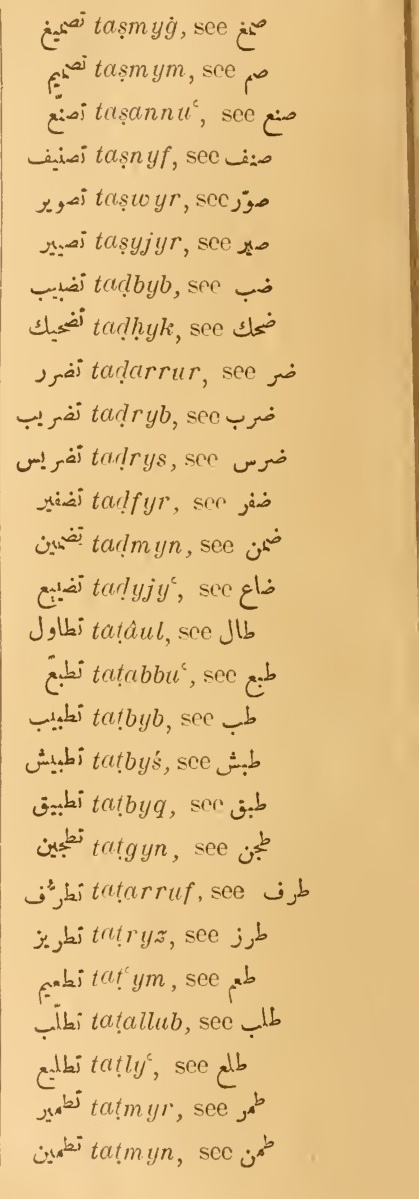 تَصميغ taṣmyġ, see صمغ
تَصميم taṣmym, see صم
تَصنّع taṣannuʿ, see صنع
تَصنيف taṣnyf, see صنف
تَصوير taṣwyr, see صوّر
تَصيير taṣyjyr, see صير
تَضبيب taḍbyb, see ضب
تَضحيك taḍḥyk, see ضحك
تَضرر taḍarrur, see ضر
تَضريب taḍryb, see ضرب
تَضريس taḍrys, see ضرس
تَضفير taḍfyr, see ضفر
تَضمين taḍmyn, see ضمن
تَضييع taḍyjyʿ, see ضاع
تَطاول taṭâul, see طال
تَطبّع taṭabbuʿ, see طبع
تَطبيب taṭbyb, see طب
تَطبيش taṭbyś, see طبش
تَطبيق taṭbyq, see طبق
تَطجين taṭgyn, see طجن
تَطرُّف taṭarruf, see طرف
تَطريز taṭryz, see طرز
تَطعيم taṭʿym, see طعم
تَطلّب taṭallub, see طلب
تَطليع taṭlyʿ, see طلع
تَطمير taṭmyr, see طمر
تَطمين taṭmyn, see طمن